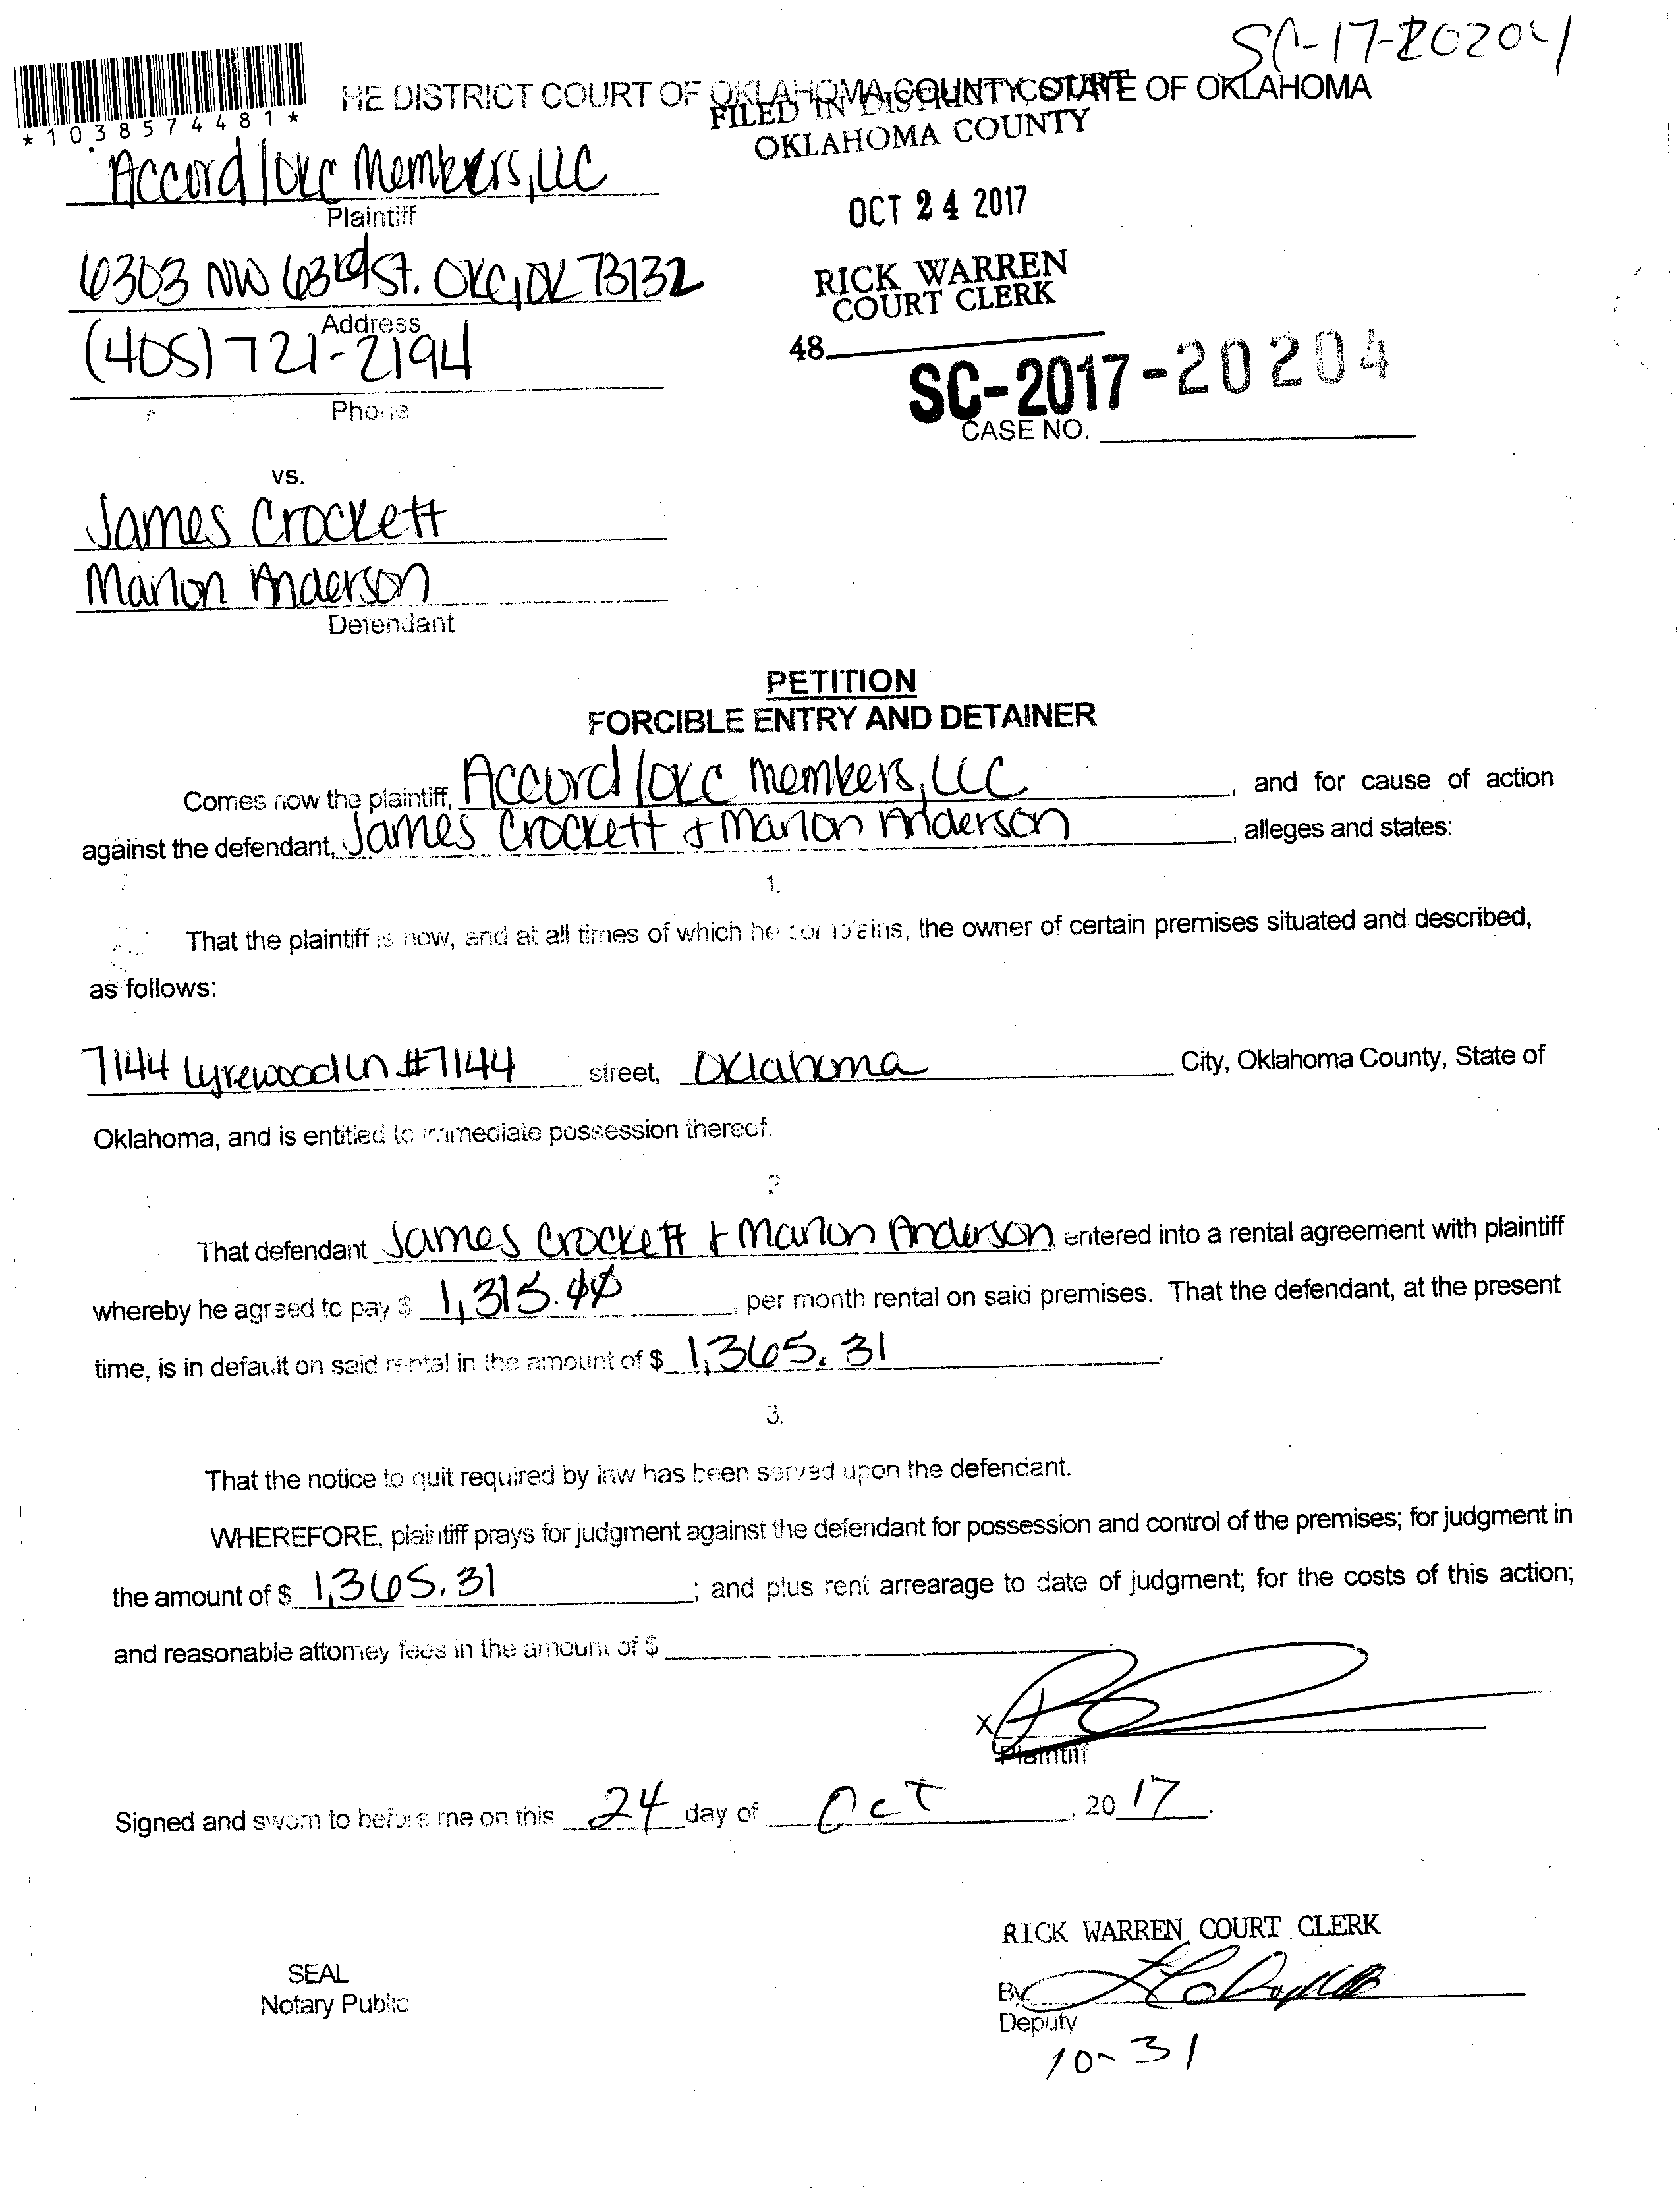 SC-17-20204
*1038574481*
HE DISTRICT COURT OF OKLAHOMA COUNTY, STATE OF OKLAHOMA
FILED IN DISTRICT COURT
OKLAHOMA COUNTY
Accord/OKC Members, LLC
Plaintiff
OCT 24 2017
6303 NW 63rd St. OKC, OK 73132
Address
RICK WARREN
COURT CLERK
(405) 721-2194
Phone
48
SC-2017-20204
CASE NO.
vs.
James Crockett
Marlon Anderson
Defendant
PETITION
FORCIBLE ENTRY AND DETAINER
Comes now the plaintiff, Accord/OKC Members, LLC, and for cause of action
against the defendant, James Crockett + Marlon Anderson, alleges and states:
1.
That the plaintiff is now, and at all times of which he complains, the owner of certain premises situated and described,
as follows:
7144 Lyrewood Ln #7144 street, Oklahoma City, Oklahoma County, State of
Oklahoma, and is entitled to immediate possession thereof.
2.
That defendant James Crockett + Marlon Anderson entered into a rental agreement with plaintiff
whereby he agreed to pay $ 1,315.00, per month rental on said premises. That the defendant, at the present
time, is in default on said rental in the amount of $ 1,365.31.
3.
That the notice to quit required by law has been served upon the defendant.
WHEREFORE, plaintiff prays for judgment against the defendant for possession and control of the premises; for judgment in
the amount of $ 1,365.31; and plus rent arrearage to date of judgment; for the costs of this action;
and reasonable attorney fees in the amount of $
X
Plaintiff
Signed and sworn to before me on this 24 day of Oct, 20 17.
RICK WARREN COURT CLERK
SEAL
Notary Public
By
Deputy
10-31